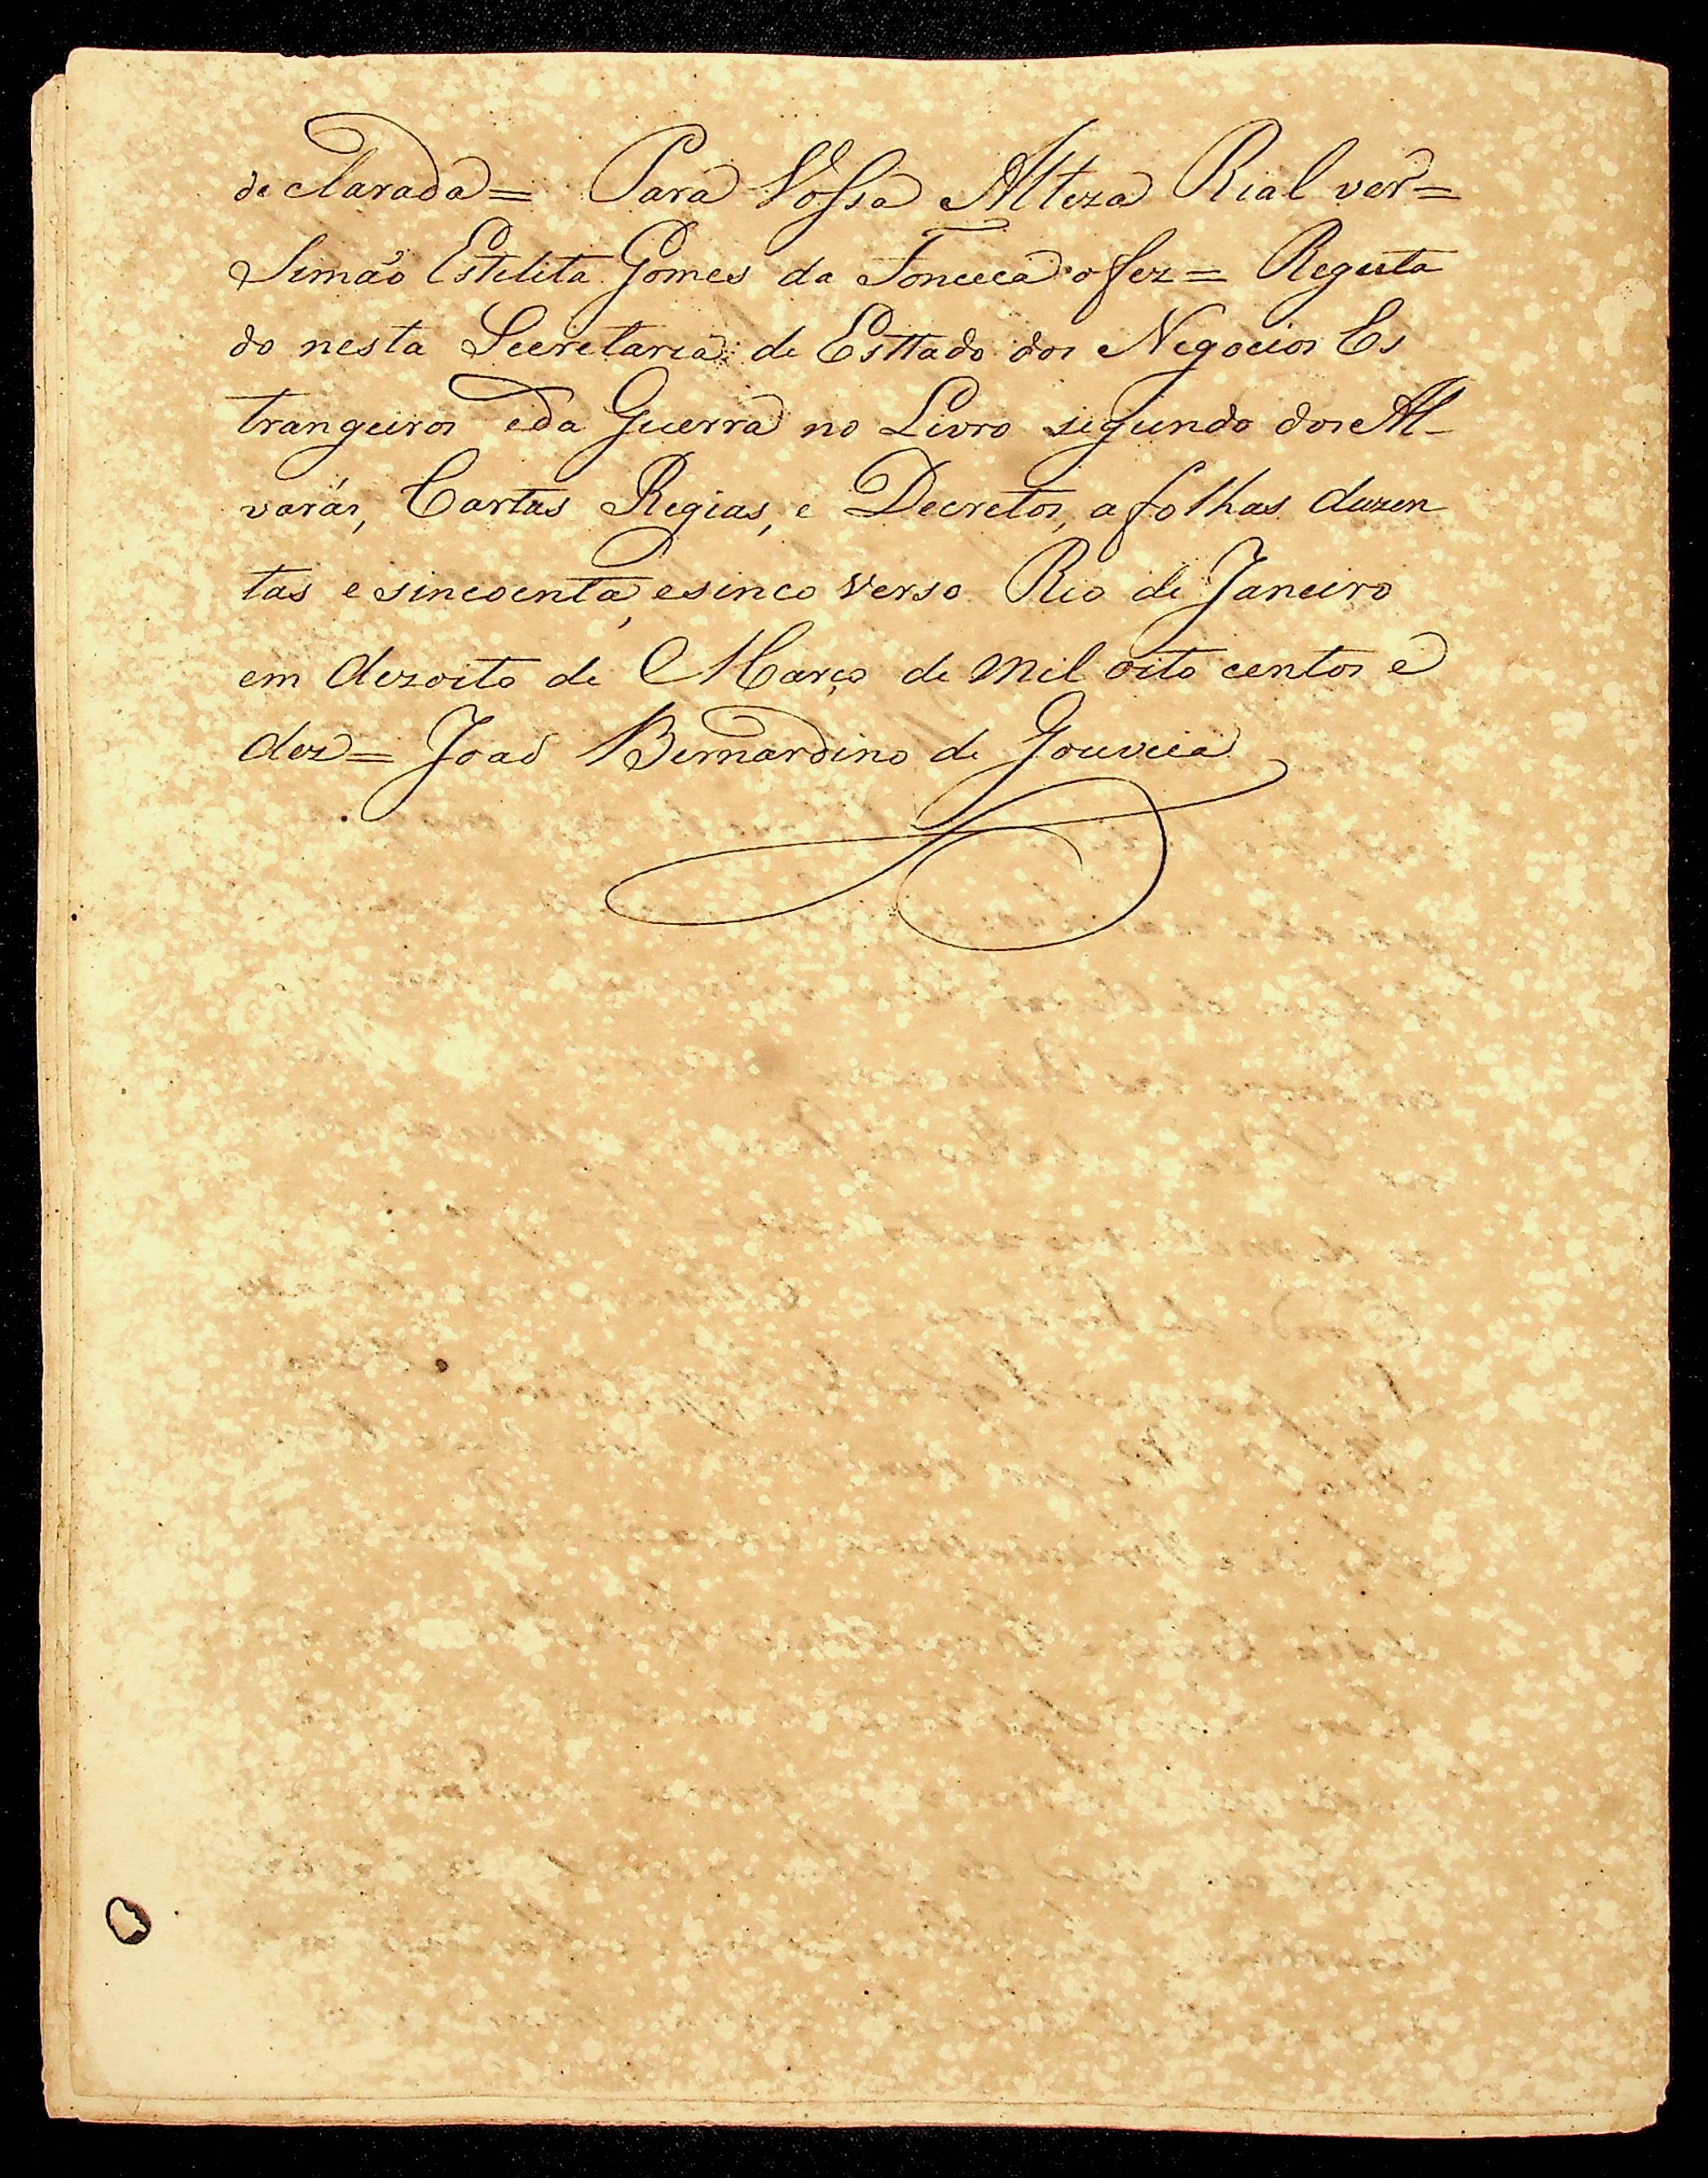 declarada= Para Vossa Alteza Rial ver=
Simão Estelita Gomes da Fonceca o fez= Regista
do nesta Secretaria de Esttado dos Negocios Es
trangeiros eda Guerra no Livro segundo dos Al-
varás, Cartas Regias, e Decretos, afolhas duzen
tas e sincoenta, esinco verso Rio de Janeiro
em dezoito de Março de mil oito centos e
dez= Joaõ Bernardino de Gouveia